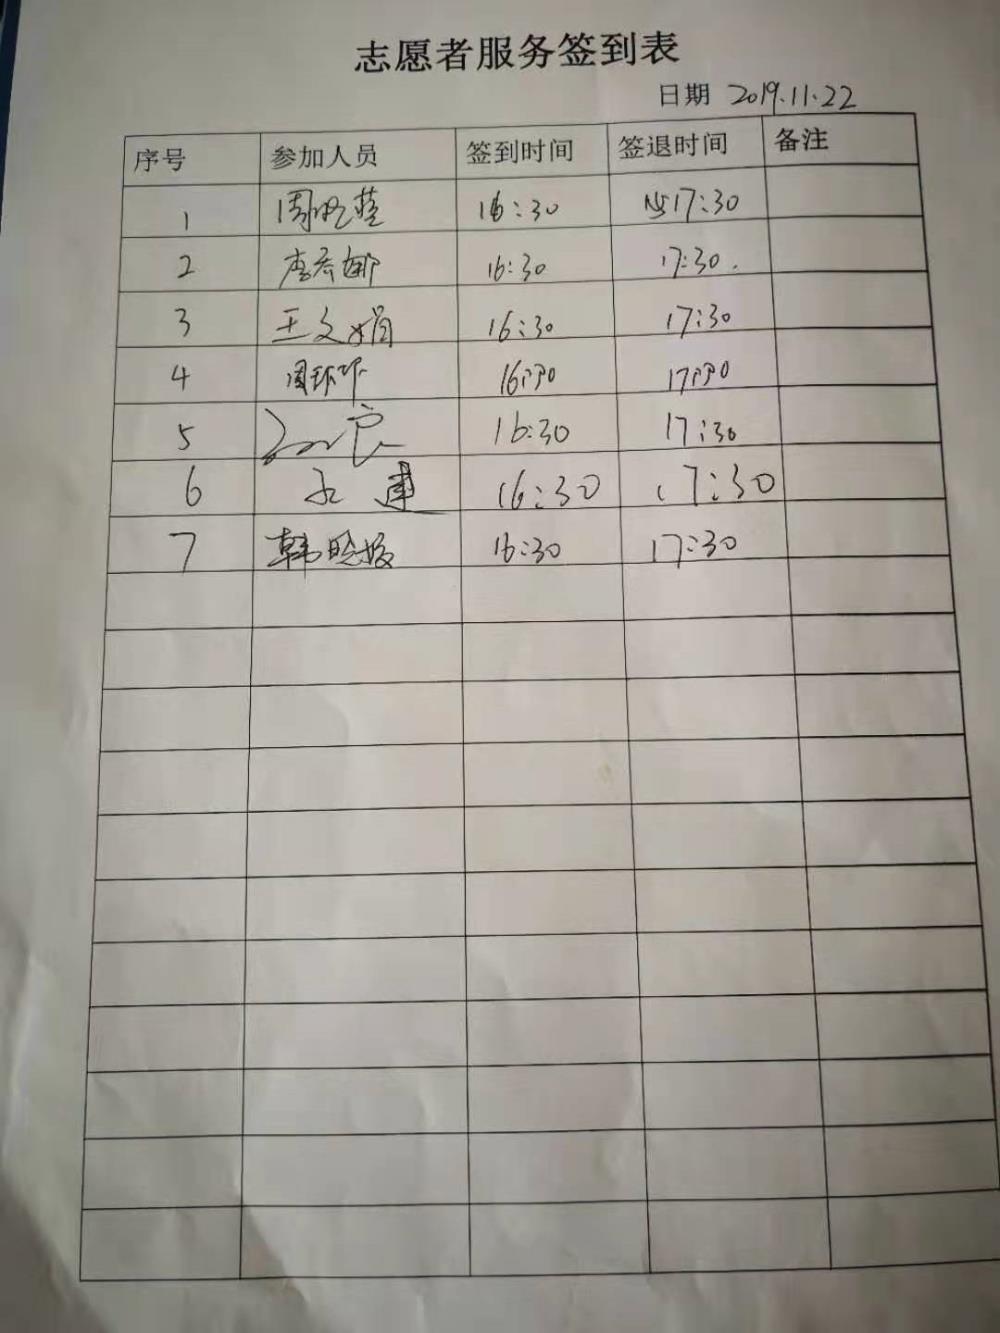 志愿者服务签到表
日期 2019.11.22
序号 参加人员 签到时间 签退时间 备注
1 周 16:30 17:30
2 李 娜 16:30 17:30.
3 王文娟 16:30 17:30
4 环环 16:30 17:30
5 良 16:30 17:30
6 建 16:30 17:30
7 韩晓 16:30 17:30